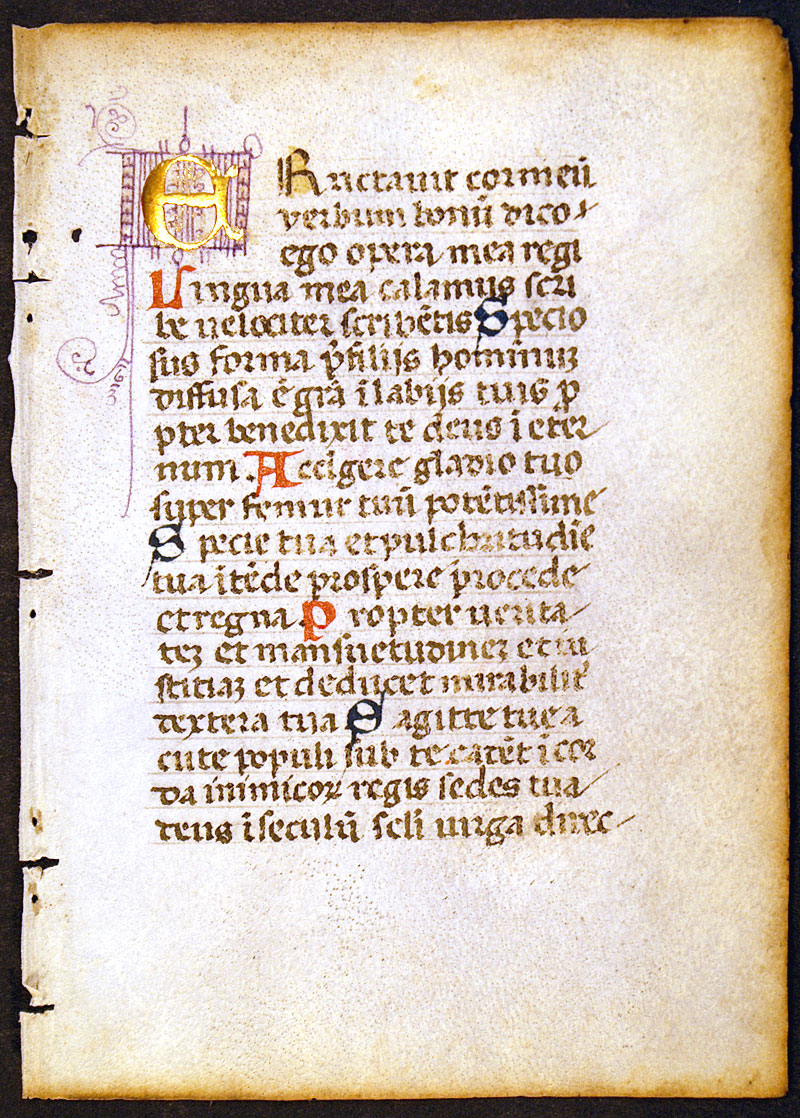 ERuctauit cor meū
verbum bonū dico
ego opera mea regi
Lingua mea calamus scri
be uelociter scribētis Specio
sus forma p̄ filijs hominuz
diffusa ē grā i labijs tuis p̄p
pter benedixit te deus i eter
num Accigere gladio tuo
super femur tuū potētissime
Specie tua et pulchritudīe
tua ītēde prospere procede
et regna Propter uerita
tez et mansuetudinez et iu
stitiaz et deducet mirabilit̾
dextera tua Sagitte tue a
cute populi sub te cadēt i cor
da inimicoꝝ regis sedes tua
deus ī seculū scli uirga direc